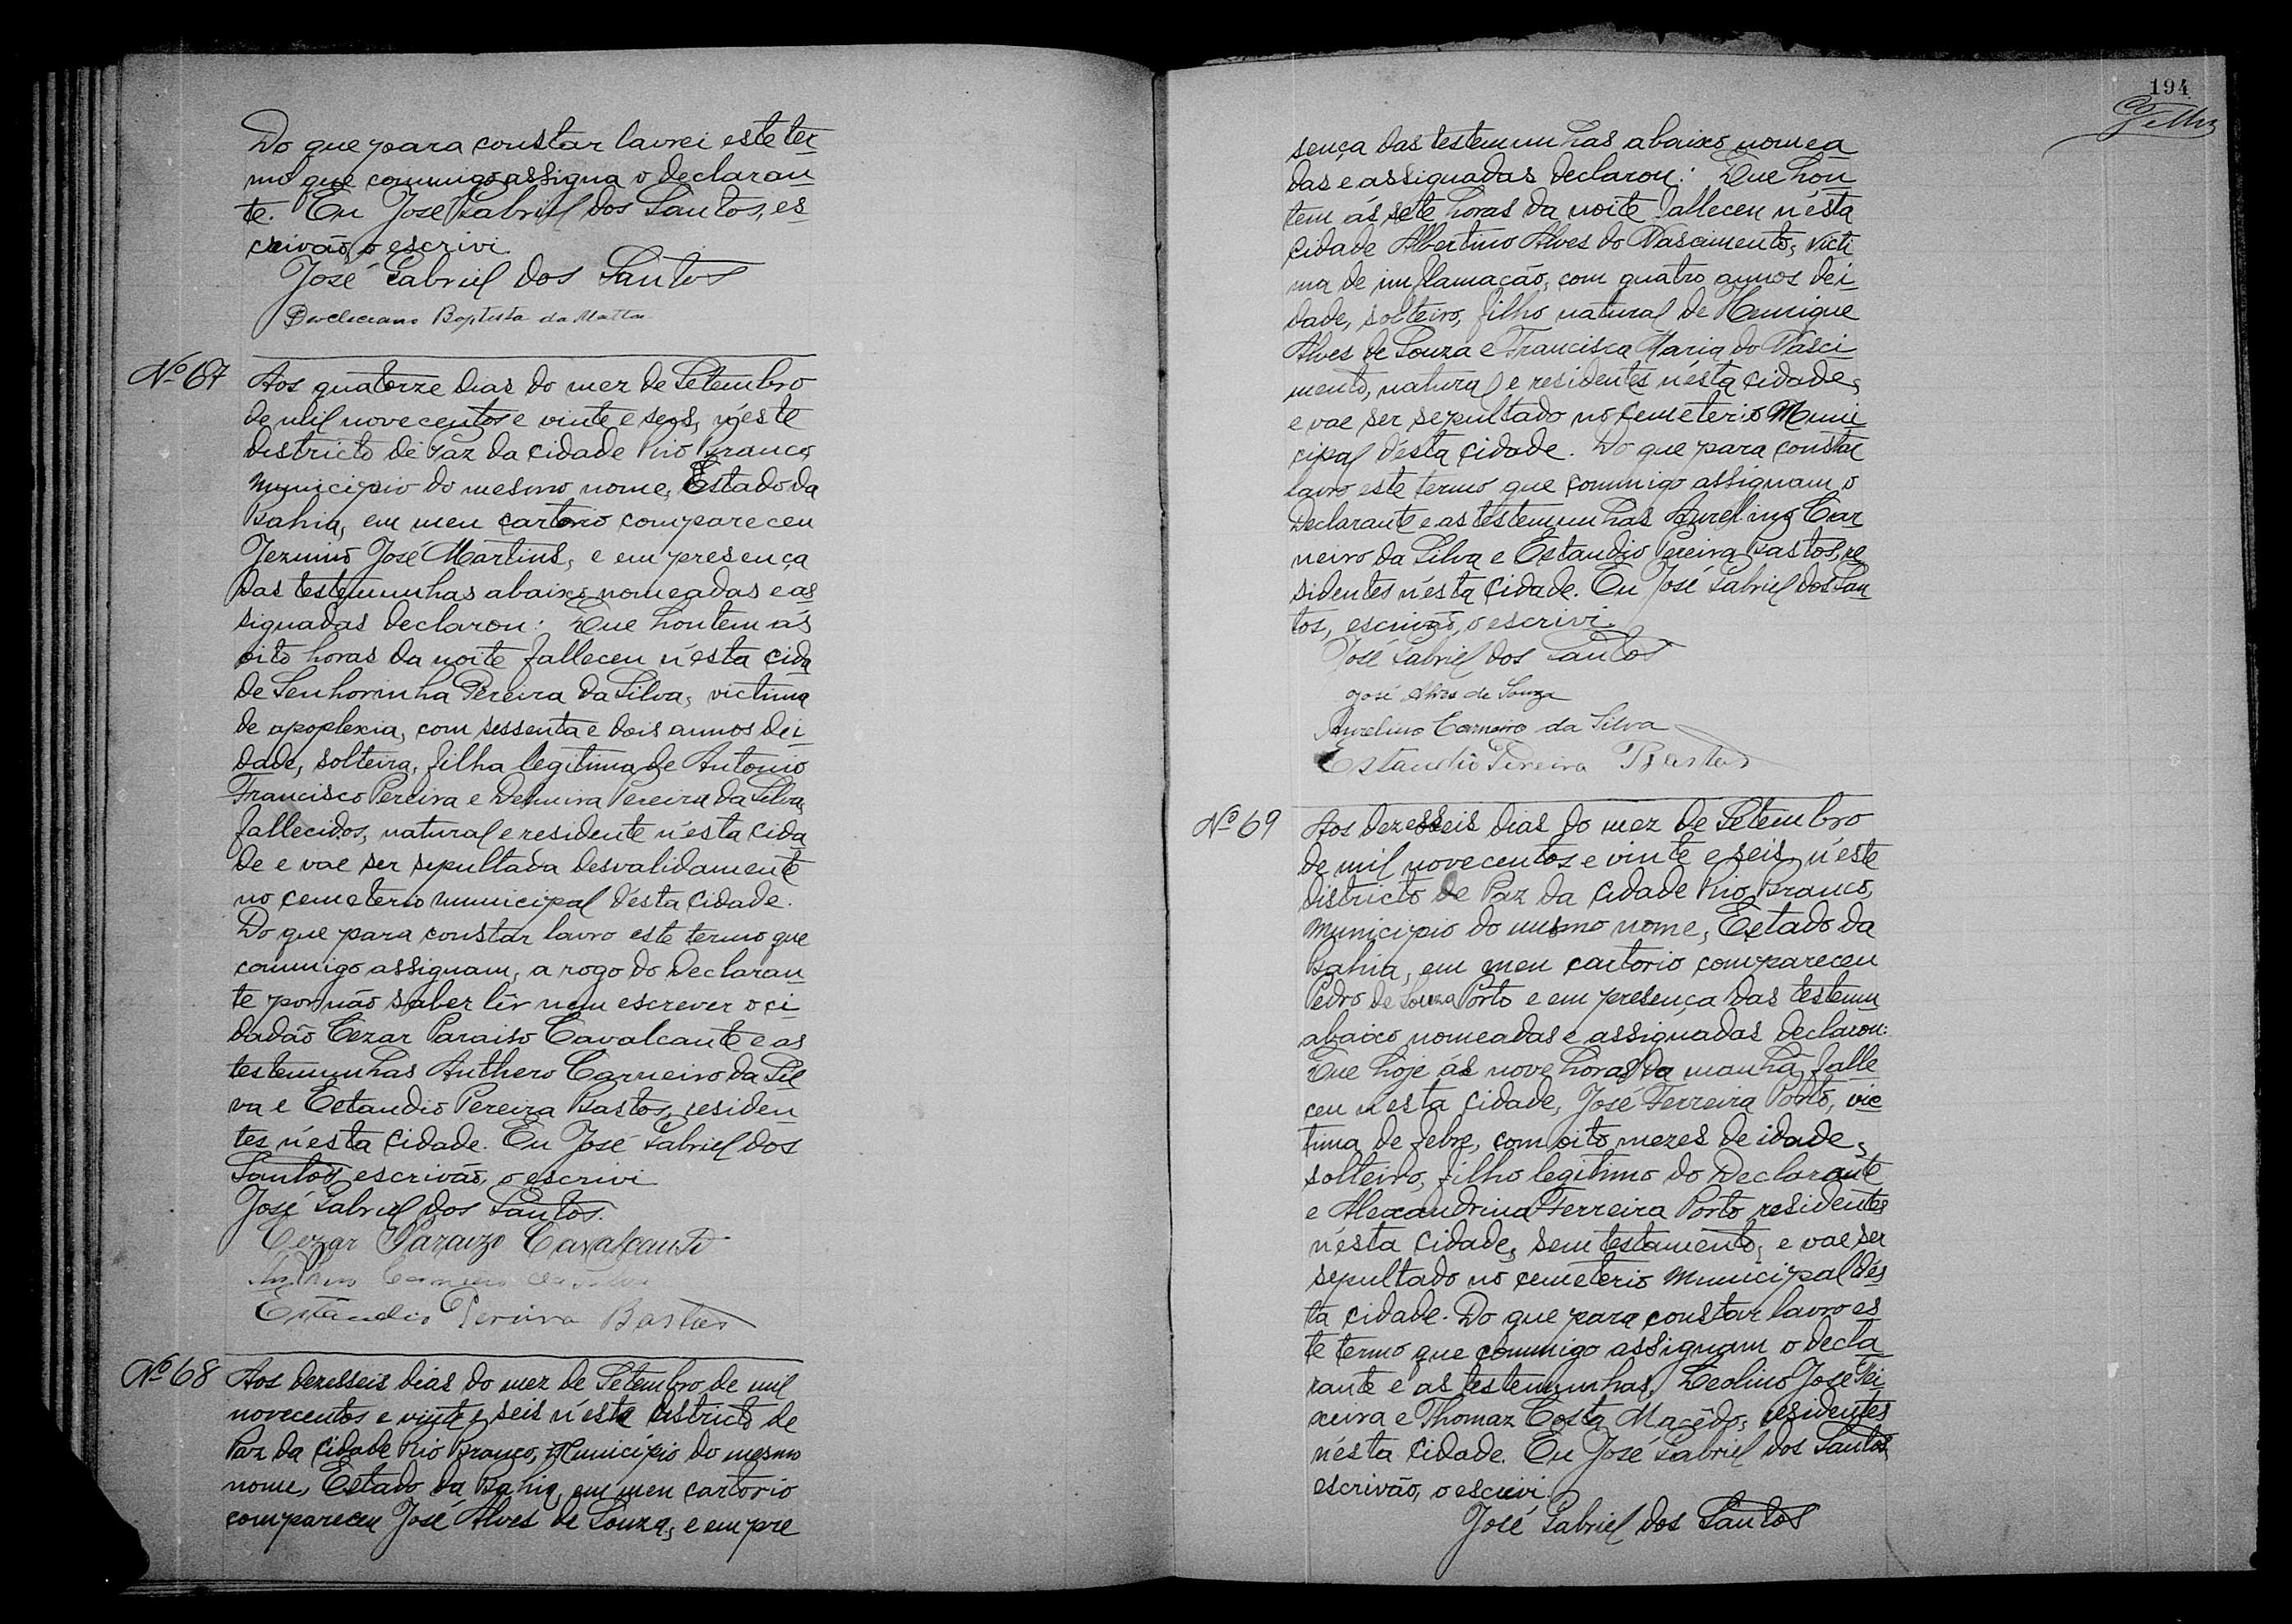 Do que para constar lavrei este ter
mo que commigo assigna o declaran
te. Eu José Gabriel dos Santos, es
crivão, o escrivi.
José Gabriel dos Santos
Baptista da Matta
Nº 67
Aos quatorze dias do mez de Setembro
de mil novecentos e vinte e seis, n'este
districto de Paz da cidade Rio Branco,
municipio do mesmo nome, Estado da
Bahia, em meu cartorio compareceu
José Martins, e em presença
das testemunhas abaixo nomeadas e as
signadas declarou: Que hontem ás
oito horas da noite falleceu n'esta cida
de Senhorinha Pereira da Silva, victima
de apoplexia, com sessenta e dois annos de i
dade, solteira, filha legitima de Antonio
Francisco Pereira e Delmira Pereira da Silva,
fallecidos, natural e residente n'esta cida
de e vae ser sepultada desvalidamente
no cemeterio municipal d'esta cidade.
Do que para constar lavro este termo que
commigo assignam, a rogo do declaran
te por não saber lêr nem escrever o ci
dadão Cezar Paraiso Cavalcante e as
testemunhas Anthero Carneiro da Sil
va e Estaudio Pereira Bastos, residen
tes n'esta cidade. Eu José Gabriel dos
Santos, escrivão, o escrivi
José Gabriel dos Santos.
Cezar Paraizo Cavalcanti
Anthero Carneiro da Silva
Estaudio Pereira Bastos
Nº 68
Aos dezesseis dias do mez de Setembro de mil
novecentos e vinte e seis n'este districto de
Paz da cidade Rio Branco, Municipio do mesmo
nome, Estado da Bahia, em meu cartorio
compareceu José Alves de Souza, e em pre
194
sença das testemunhas abaixo nomea
das e assignadas declarou: Que hon
tem ás sete horas da noite falleceu n'ésta
cidade Albertino Alves do Nascimento, victi
ma de imflamação, com quatro annos de i
dade, solteiro, filho natural de Henrique
Alves de Souza e Francisca Maria do Nasci
mento, natural e residentes n'ésta cidade,
e vae ser sepultado no cemeterio Muni
cipal d'ésta cidade. Do que para constar
lavro este termo que commigo assignam o
declarante e as testemunhas Aurelino Car
neiro da Silva e Estaudio Pereira Bastos, re
sidentes n'ésta cidade. Eu José Gabriel dos San
tos, escrivão, o escrivi.
José Gabriel dos Santos
José Alves de Souza
Aurelino Carneiro da Silva
Estaudio Pereira Bastos
Nº 69
Aos dezesseis dias do mez de Setembro
de mil novecentos e vinte e seis, n'este
districto de Paz da cidade Rio Branco,
municipio do mesmo nome, Estado da
Bahia, em meu cartorio compareceu
Pedro de Souza Porto e em presença das testemu
abaixo nomeadas e assignadas declarou:
Que hoje ás nove horas da manhã, falle
ceu n'esta cidade, José Ferreira Porto, vic
tima de febre, com oito mezes de idade,
solteiro, filho legitimo do declarante
e Alexandrina Ferreira Porto residentes
n'ésta cidade, sem testamento, e vae ser
sepultado no cemeterio municipal d'és
ta cidade. Do que para constar lavro es
te termo que commigo assignam o decla
rante e as testemunhas, Leolino José Tei
xeira e Thomaz Costa Macêdo, residentes
n'ésta cidade. Eu José Gabriel dos Santos,
escrivão, o escrivi.
José Gabriel dos Santos